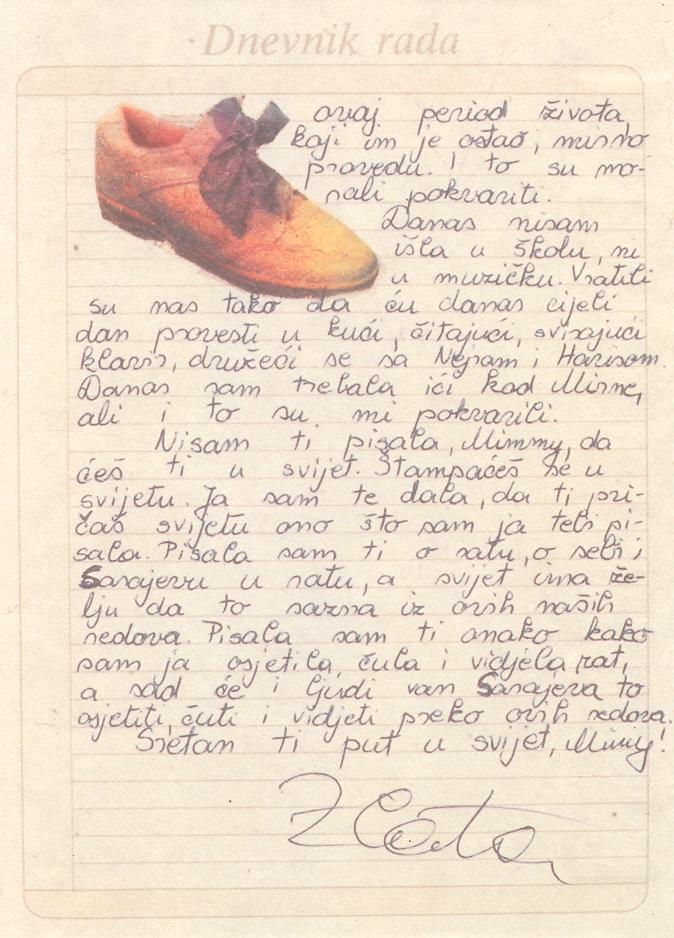 Dnevnik rada
ovaj period života,
koji im je ostao, mirno
provedu. I to su mo-
rali pokvariti.
Danas nisam
išla u školu, ni
u muzičku. Vratili
su nas tako da ću danas cijeli
dan provesti u kući, čitajući, svirajući
klavir, družeći se sa Nejrom i Harisom.
Danas sam trebala ići kod Mirne,
ali i to su mi pokvarili.
Nisam ti pisala, Mimmy, da
ćeš ti u svijet. Štampaćeš se u
svijetu. Ja sam te dala, da ti pri-
čaš svijetu ono što sam ja tebi pi-
sala. Pisala sam ti o ratu, o sebi i
Sarajevu u ratu, a svijet ima že-
lju da to sazna iz ovih naših
redova. Pisala sam ti onako kako
sam ja osjetila, čula i vidjela rat,
a sad će i ljudi van Sarajeva to
osjetiti, čuti i vidjeti preko ovih redova.
Sretan ti put u svijet, Mimmy!
Zlata